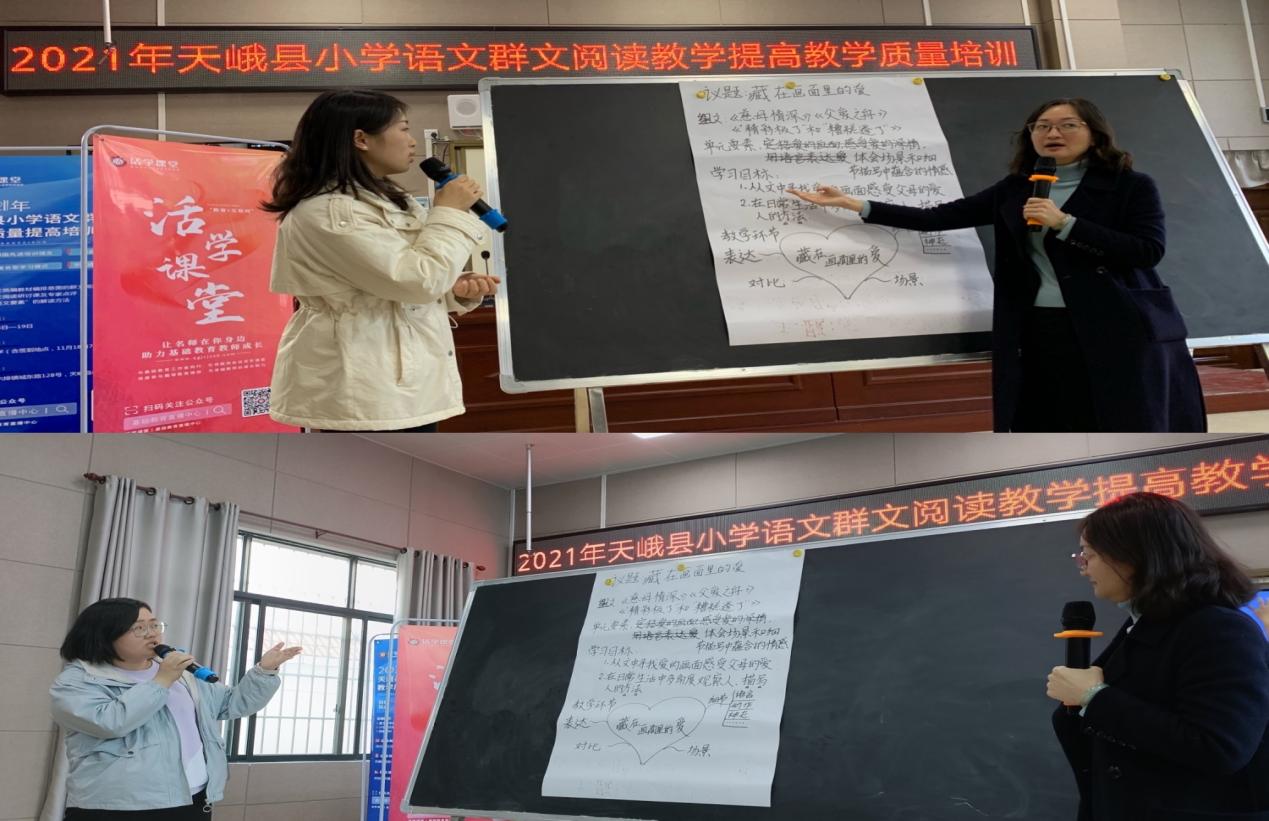 2021年天峨县小学语文群文阅读教学提高教学质量培训
活学课堂
活学课堂
让名师在你身边
助力基础教育教师成长
扫码关注公众号
基础教育直播中心
议题:藏在画面里的爱
组文《慈母情深》《父爱之舟》
《“精彩极了”和“糟糕透了”》
学习目标:
1.从文中寻找爱的画面感受父母的爱
人的方法
教学环节
表达
藏在画面里的爱
对比
场景
2021年天峨县小学语文群文阅读教学提高教学
议题:藏在画面里的爱
组文《慈母情深》《父爱之舟》
《“精彩极了”和“糟糕透了”》
用语言表达爱 体会场景和细
节描写中蕴含的情感
学习目标:
1.从文中寻找爱的画面感受父母的爱
2.在日常生活中多角度观察人、描写
人的方法
教学环节
细节
语言
动作
神态
表达
藏在画面里的爱
对比
场景